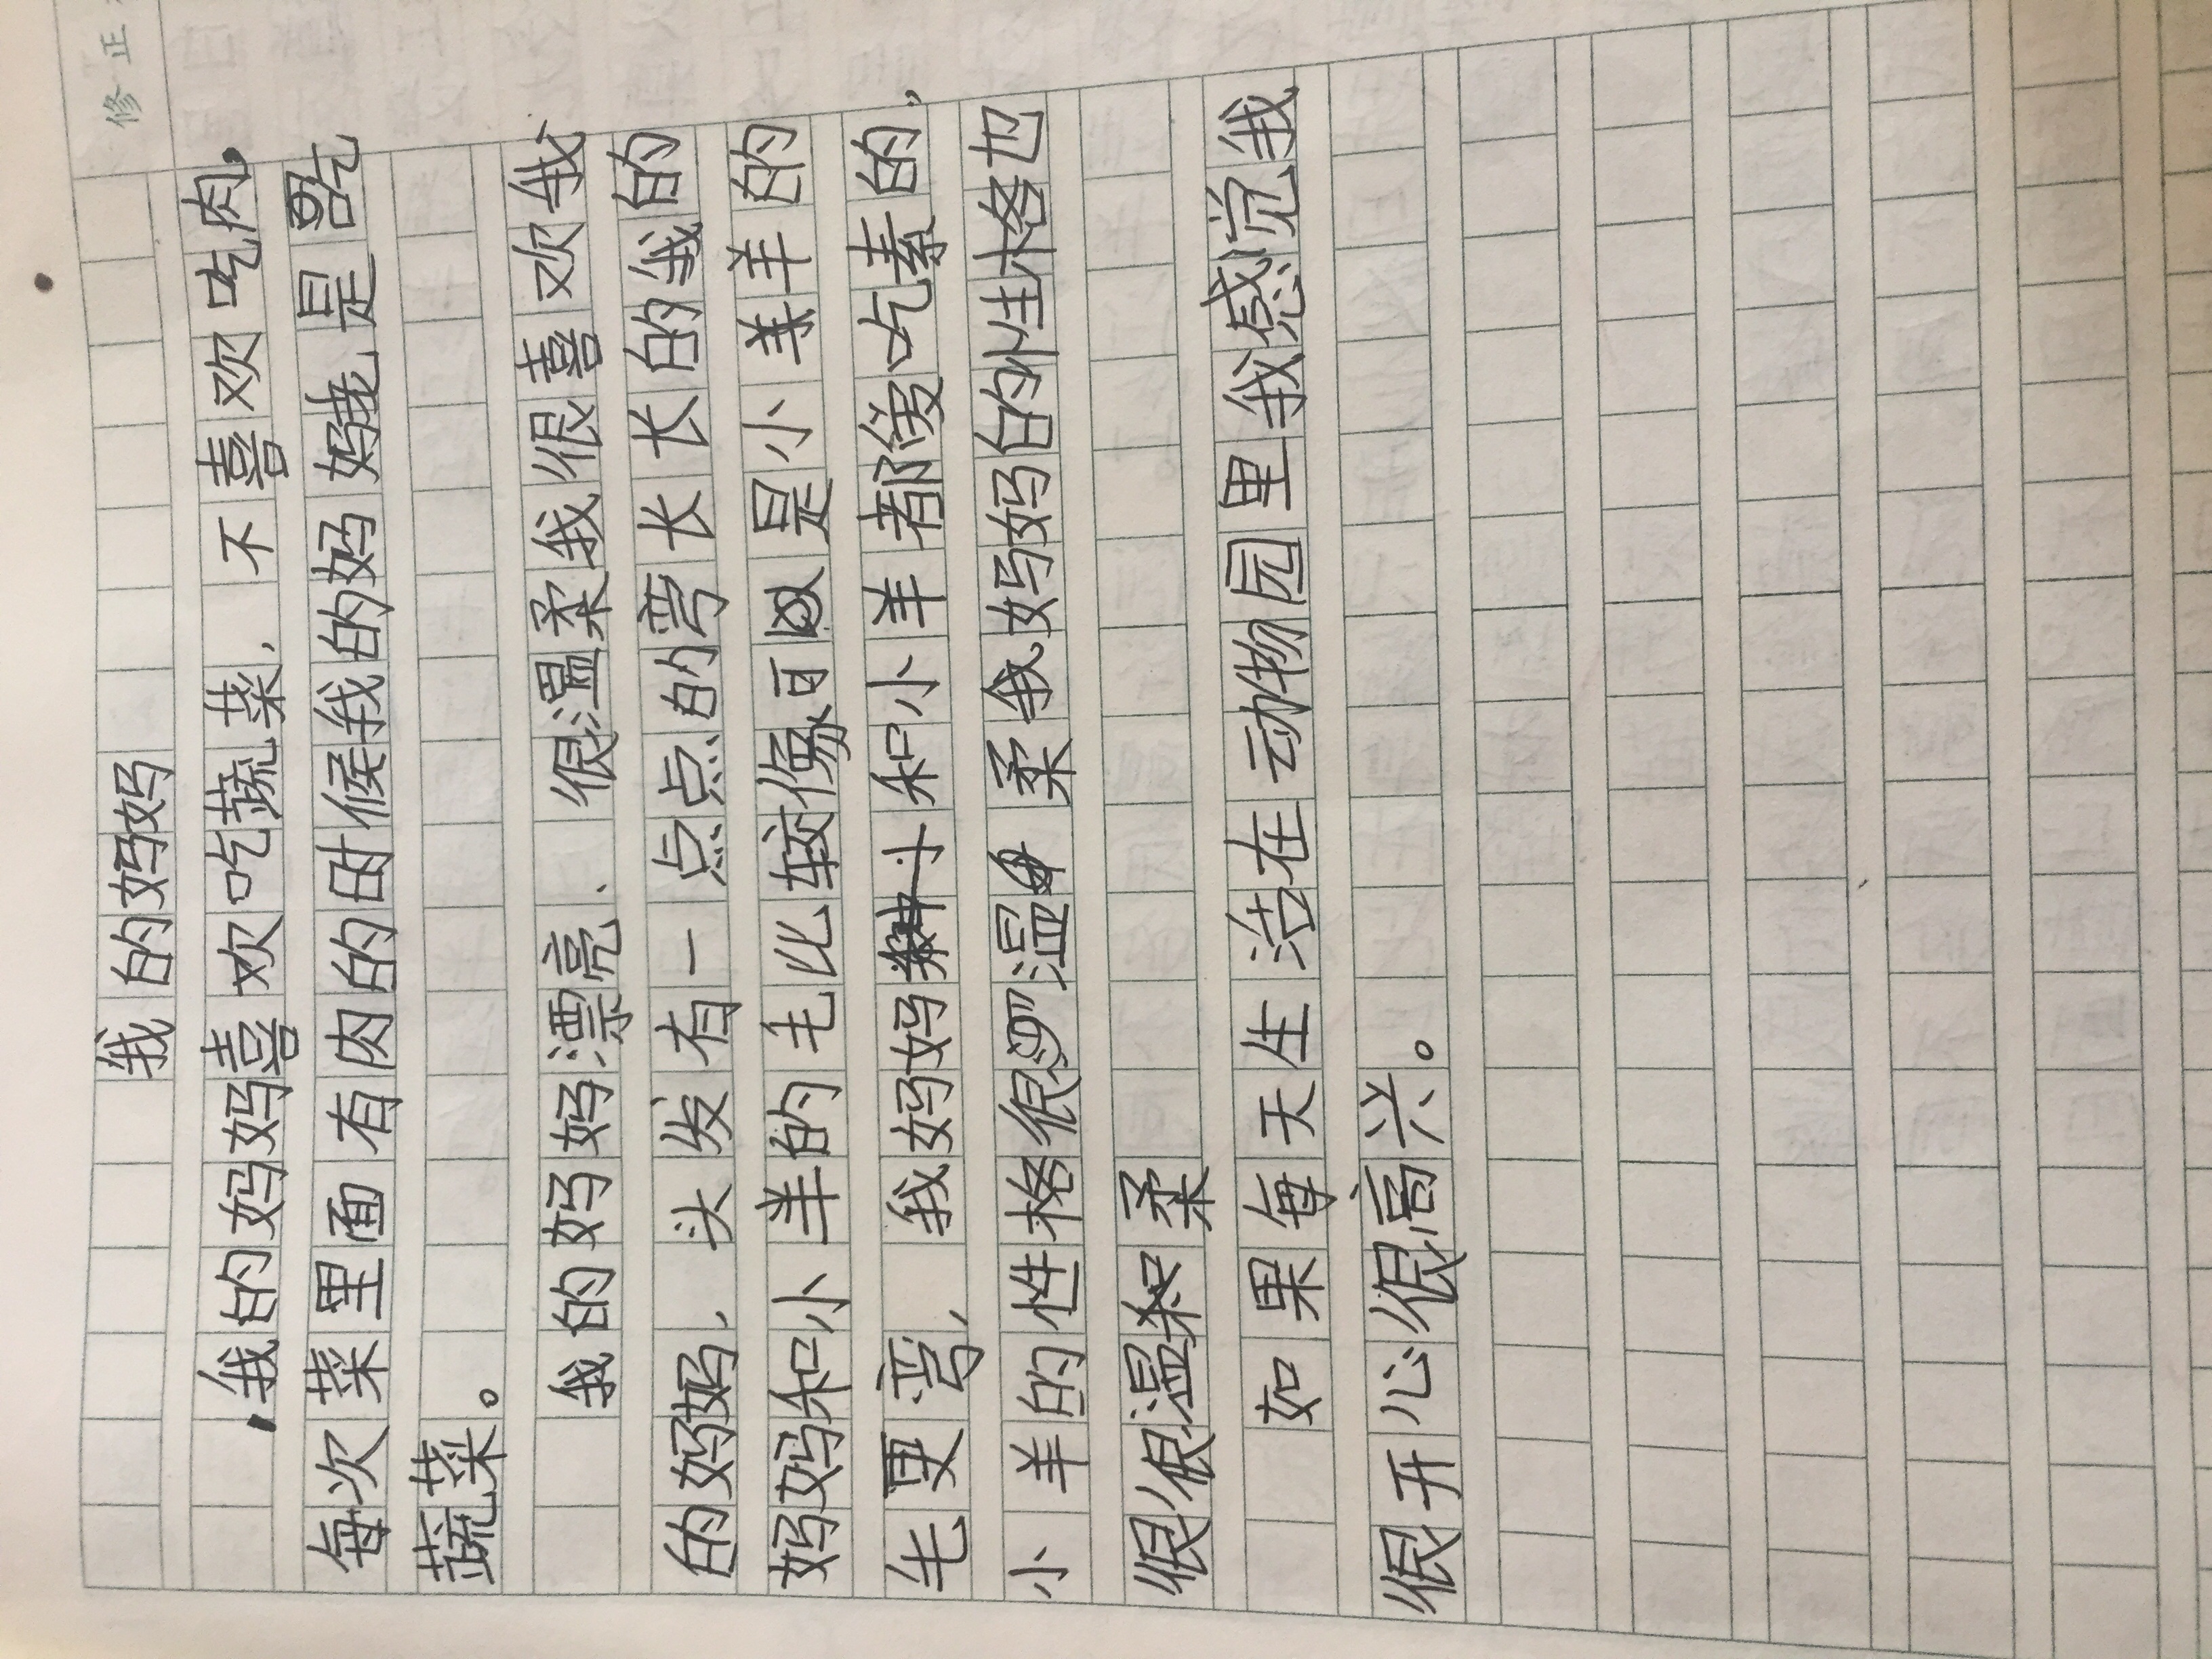 修正
我的妈妈
我的妈妈喜欢吃蔬菜，不喜欢吃肉，
每次菜里面有肉的时候我的妈妈是吃
蔬菜。
我的妈妈漂亮、很温柔我很喜欢我
的妈妈，头发有一点点的弯长长的我的
妈妈和小羊的毛比较像可是小羊羊的
毛更弯，我妈妈和小羊都爱吃素的，
小羊的性格很温柔我妈妈的性格也
很很温柔
如果每天生活在动物园里我感觉我
很开心很高兴。